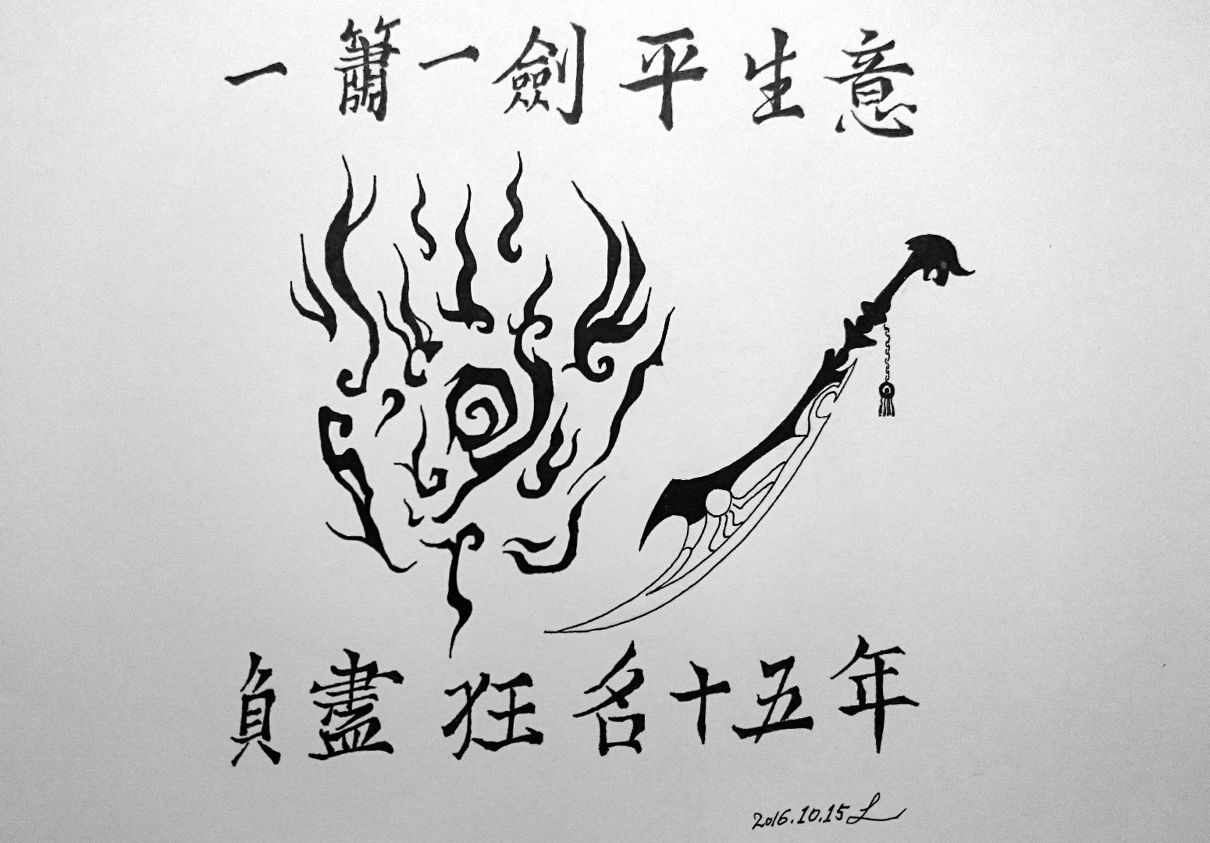 一簫一劍平生意
負盡狂名十五年
2016.10.15 L